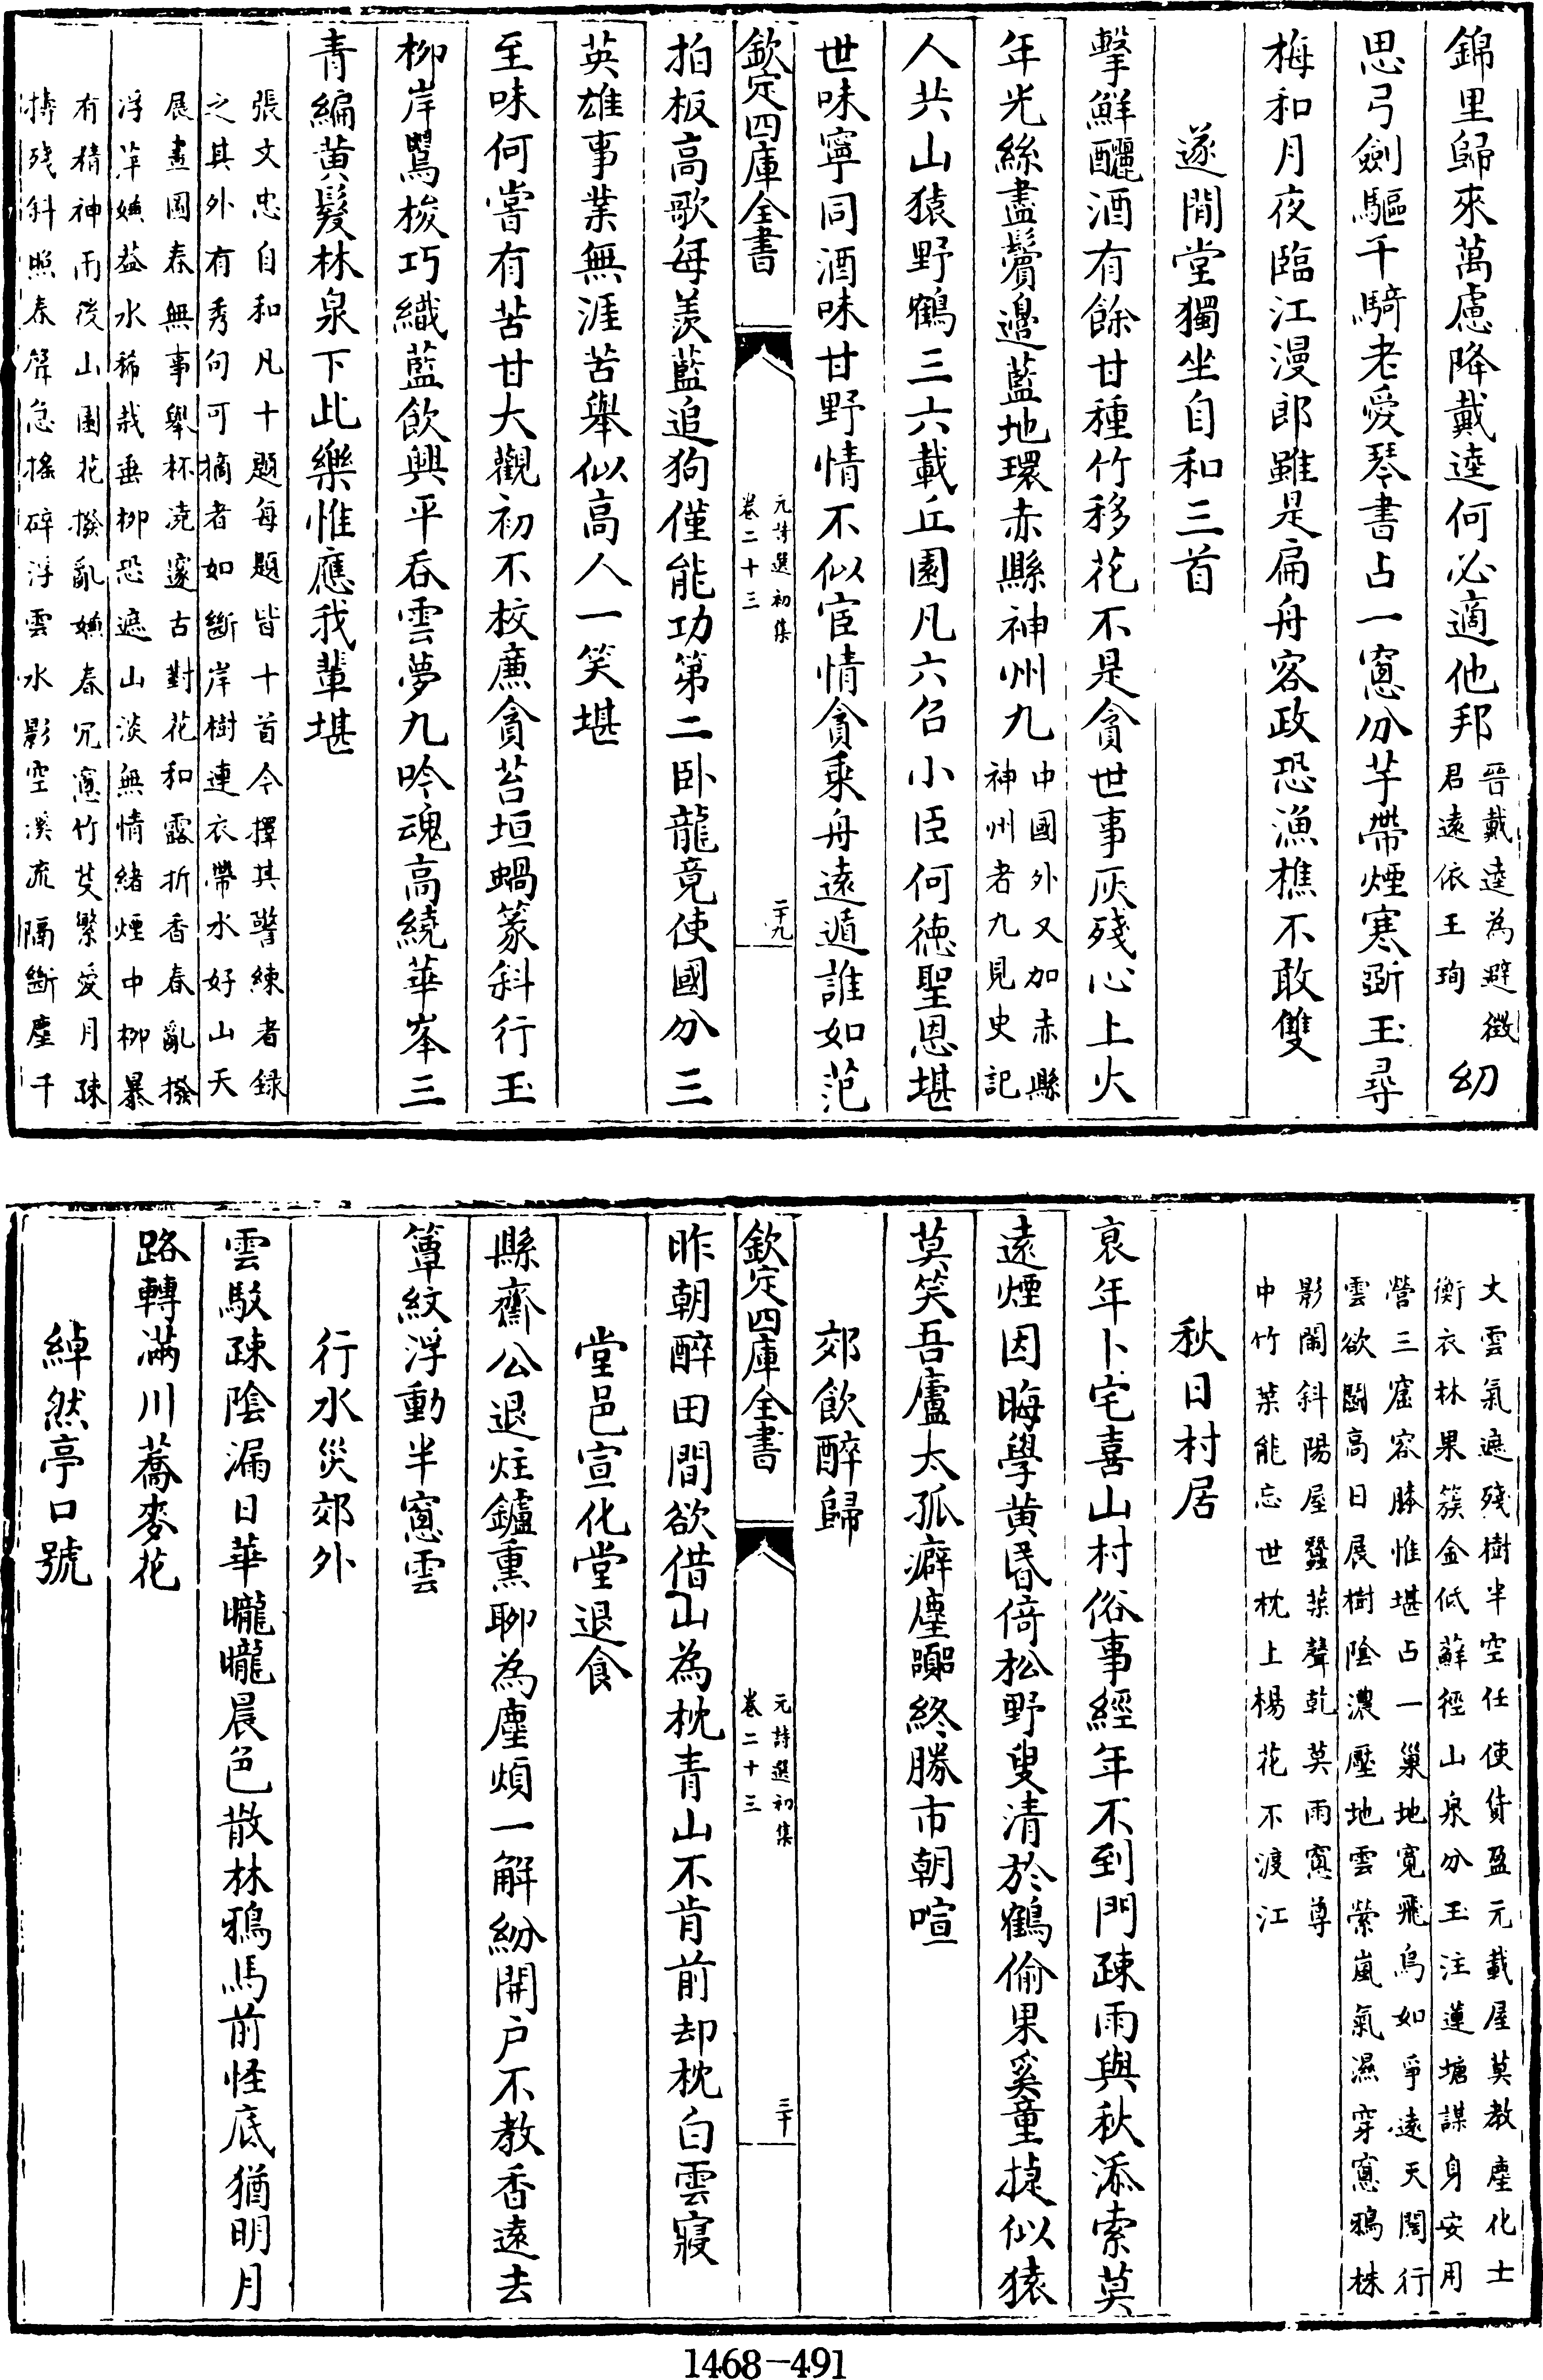 錦里歸來萬慮降戴逵何必適他邦晉戴逵為避徵君遠依王珣幼
思弓劍驅千騎老愛琴書占一窻分芋帶煙寒斲玉尋
梅和月夜臨江漫郎雖是扁舟客政恐漁樵不敢雙
遂閒堂獨坐自和三首
擊鮮釃酒有餘甘種竹移花不是貪世事灰殘心上火
年光絲盡鬢邊藍地環赤縣神州九中國外又加赤縣神州者九見史記
人共山猿野鶴三六載丘園凡六召小臣何德聖恩堪
世味寧同酒味甘野情不似宦情貪乘舟遠遁誰如范
欽定四庫全書
元詩選初集
卷二十三
二十九
拍板高歌每羨藍追狗僅能功第二卧龍竟使國分三
英雄事業無涯苦舉似高人一笑堪
至味何嘗有苦甘大觀初不校廉貪苔垣蝸篆斜行玉
柳岸鸎梭巧織藍飲興平吞雲夢九吟魂高繞華峯三
青編黄髮林泉下此樂惟應我輩堪
張文忠自和凡十題每題皆十首今擇其警練者録
之其外有秀句可摘者如斷岸樹連衣帶水好山天
展畫圖春無事舉杯澆邃古對花和露折香春亂撥
浮萍嫌益水稀栽垂柳恐遮山淡無情緒煙中柳暴
有精神雨後山園花撥亂嫌春冗窻竹芟繁愛月疎
摶殘斜照春聲急搖碎浮雲水影空溪流隔斷塵千
丈雲氣遮殘樹半空任使貨盈元載屋莫教塵化士
衡衣林果簇金低蘚徑山泉分玉注蓮塘謀身安用
營三窟容膝惟堪占一巢地寛飛鳥如爭遠天闊行
雲欲鬬高日展樹陰濃壓地雲縈嵐氣濕穿窻鴉株
影閙斜陽屋蠶葉聲乾莫雨窻尊
中竹葉能忘世枕上楊花不渡江
秋日村居
衰年卜宅喜山村俗事經年不到門疎雨與秋添索莫
遠煙因晦學黄昬倚松野叟清於鶴偷果奚童㨗似猿
莫笑吾廬太孤癖塵踪終勝市朝喧
郊飲醉歸
欽定四庫全書
元詩選初集
卷二十三
三十
昨朝醉田間欲借山為枕青山不肯前却枕白雲寢
堂邑宣化堂退食
縣齋公退炷鑪熏聊為塵煩一解紛開户不教香遠去
簟紋浮動半窻雲
行水災郊外
雲駮疎陰漏日華曨曨晨色散林鴉馬前怪底猶明月
路轉滿川蕎麥花
綽然亭口號
1468-491